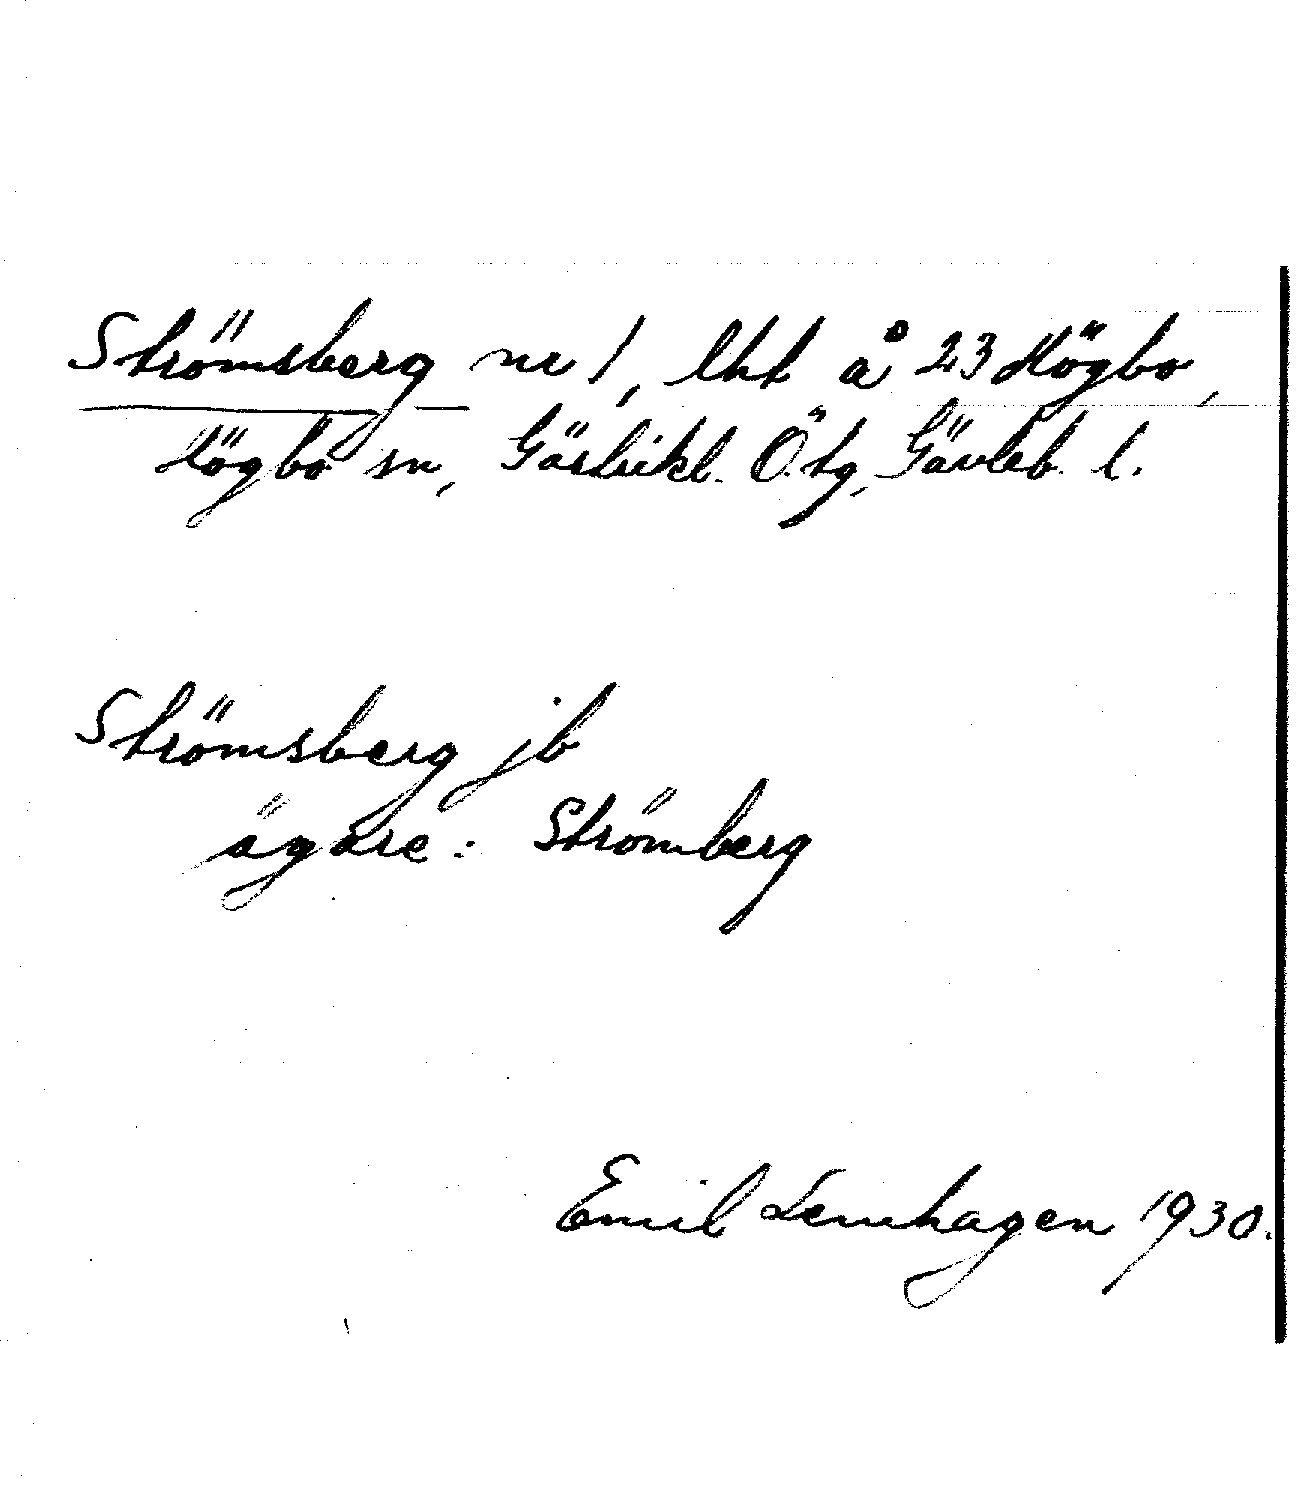 Strömsberg nr 1, lht å 23 Högbo,
Högbo sn, Gästrikl. Ö. tg, Gävleb. l.
Strömsberg jb
ägare: Strömberg
Emil Lenhagen 1930.